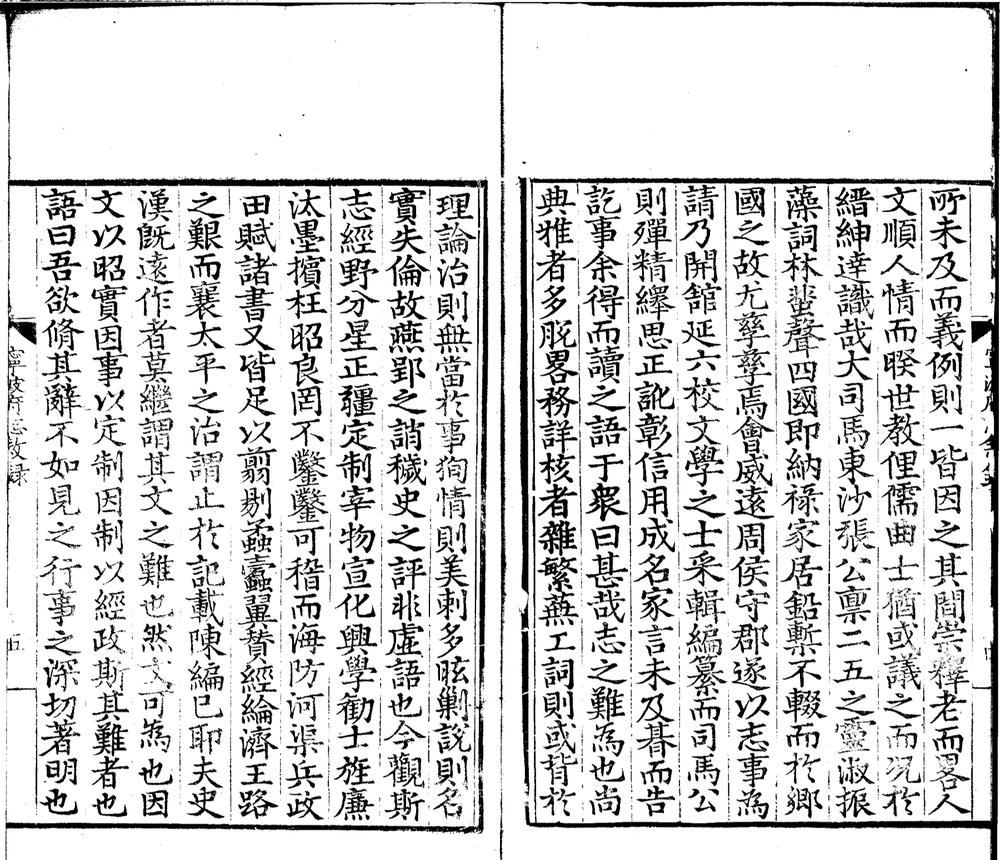 所未及而義例則一皆因之其間崇釋老而畧人
文順人情而暌世教俚儒曲士猶或議之而況於
縉紳達識哉大司馬東沙張公禀二五之靈淑振
藻詞林蜚聲四國即納祿家居鉛槧不輟而於鄉
國之故尤孳孳焉會威遠周侯守郡遂以志事為
請乃開舘延六校文學之士采輯編纂而司馬公
則殫精繹思正訛彰信用成名家言未及朞而告
訖事余得而讀之語于衆曰甚哉志之難為也尚
典雅者多脫畧務詳核者雜繁蕪工詞則或背於
理論治則無當於事狥情則美刺多眩剿說則名
實失倫故燕郢之誚穢史之評非虛語也今觀斯
志經野分星正疆定制宰物宣化興學勸士旌廉
汰墨擯枉昭良罔不鑿鑿可稽而海防河渠兵政
田賦諸書又皆足以翦剔蠹翼賛經綸濟王路
之艱而襄太平之治謂止於記載陳編已耶夫史
漢旣遠作者莫繼謂其文之難也然文可為也因
文以昭實因事以定制因制以經政斯其難者也
語曰吾欲脩其辭不如見之行事之深切著明也